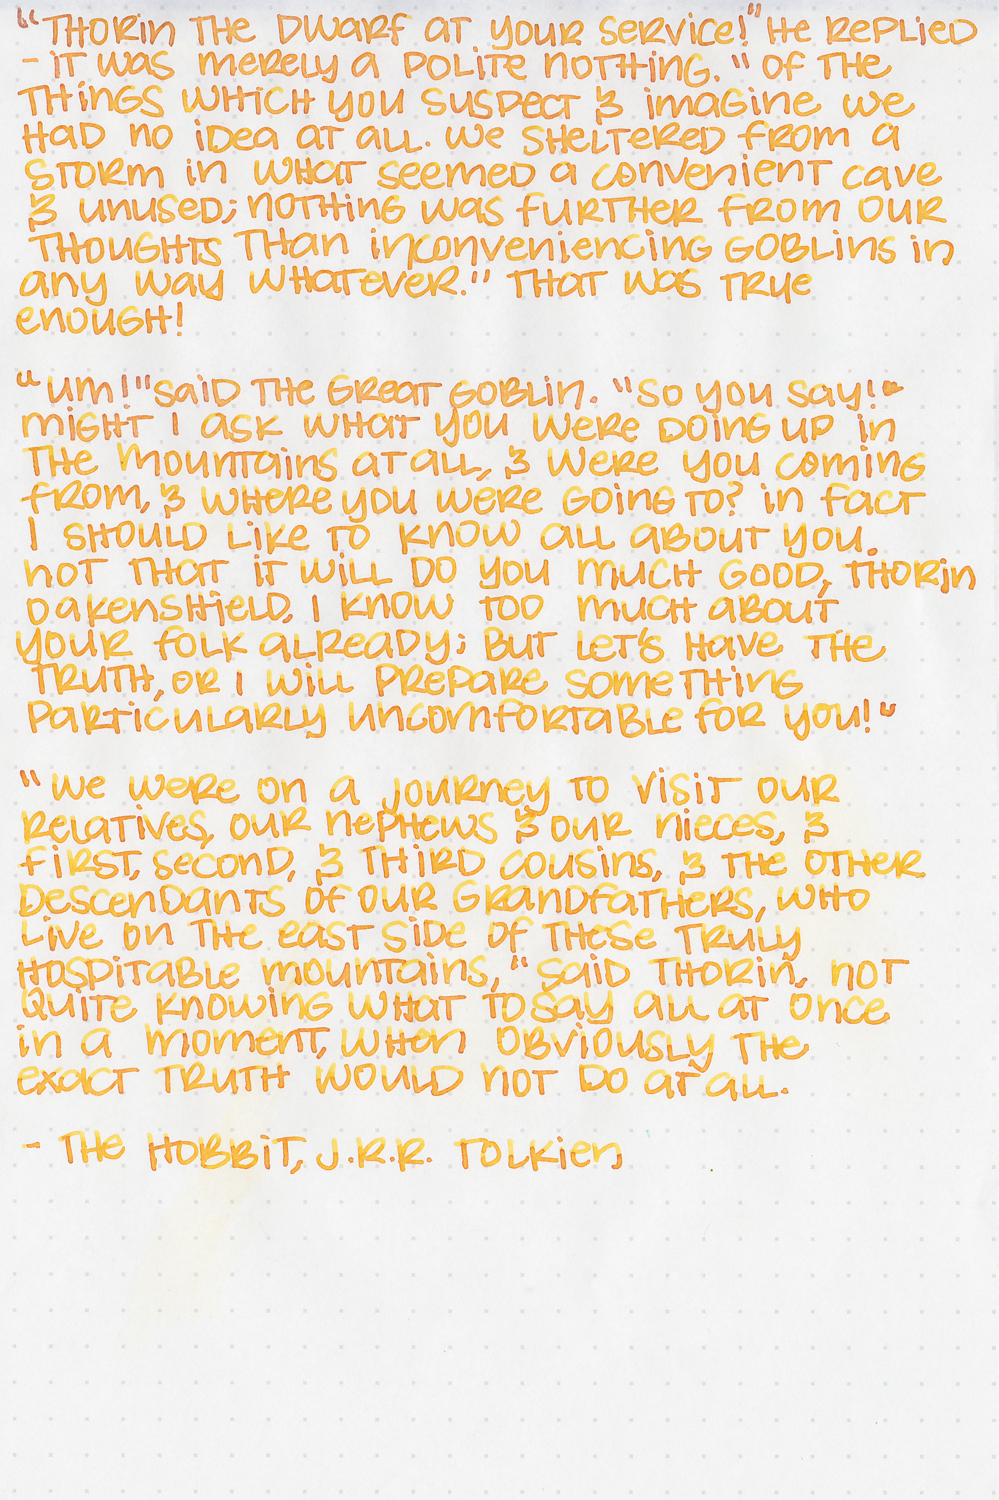 "Thorin the dwarf at your service!" He replied
- it was merely a polite nothing. "Of the
things which you suspect & imagine we
had no idea at all. We sheltered from a
storm in what seemed a convenient cave
& unused; nothing was further from our
thoughts than inconveniencing goblins in
any way whatever." That was trye
enough!

"Um!" said the Great Goblin. "So you say!
Might I ask what you were doing up in
the mountains at all, & were you coming
from, & where you were going to? In fact
I should like to know all about you.
Not that it will do you much good, Thorin
Oakenshield, I know too much about
your folk already; but let's have the
truth, or I will prepare something
particularly uncomfortable for you!"

"We were on a journey to visit our
relatives, our nephews & our nieces, &
first, second, & third cousins, & the other
descendants of our grandfathers, who
live on the east side of these truly
hospitable mountains," said Thorin, not
quite knowing what to say all at once
in a moment, when obviously the
exact truth would not do at all.

- The Hobbit, J.R.R. Tolkien